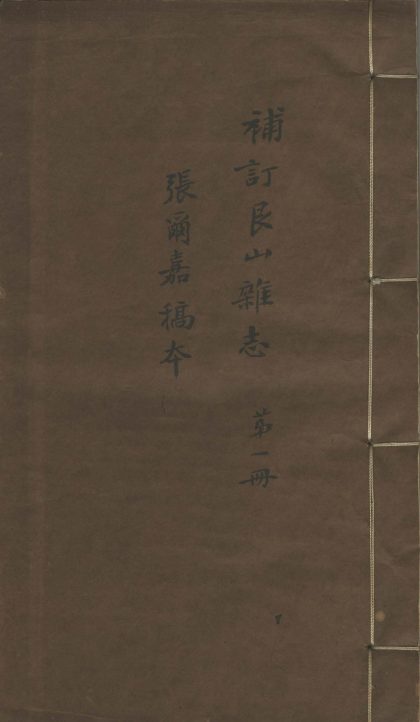 補訂艮山雜志 第一冊
張爾嘉稿本